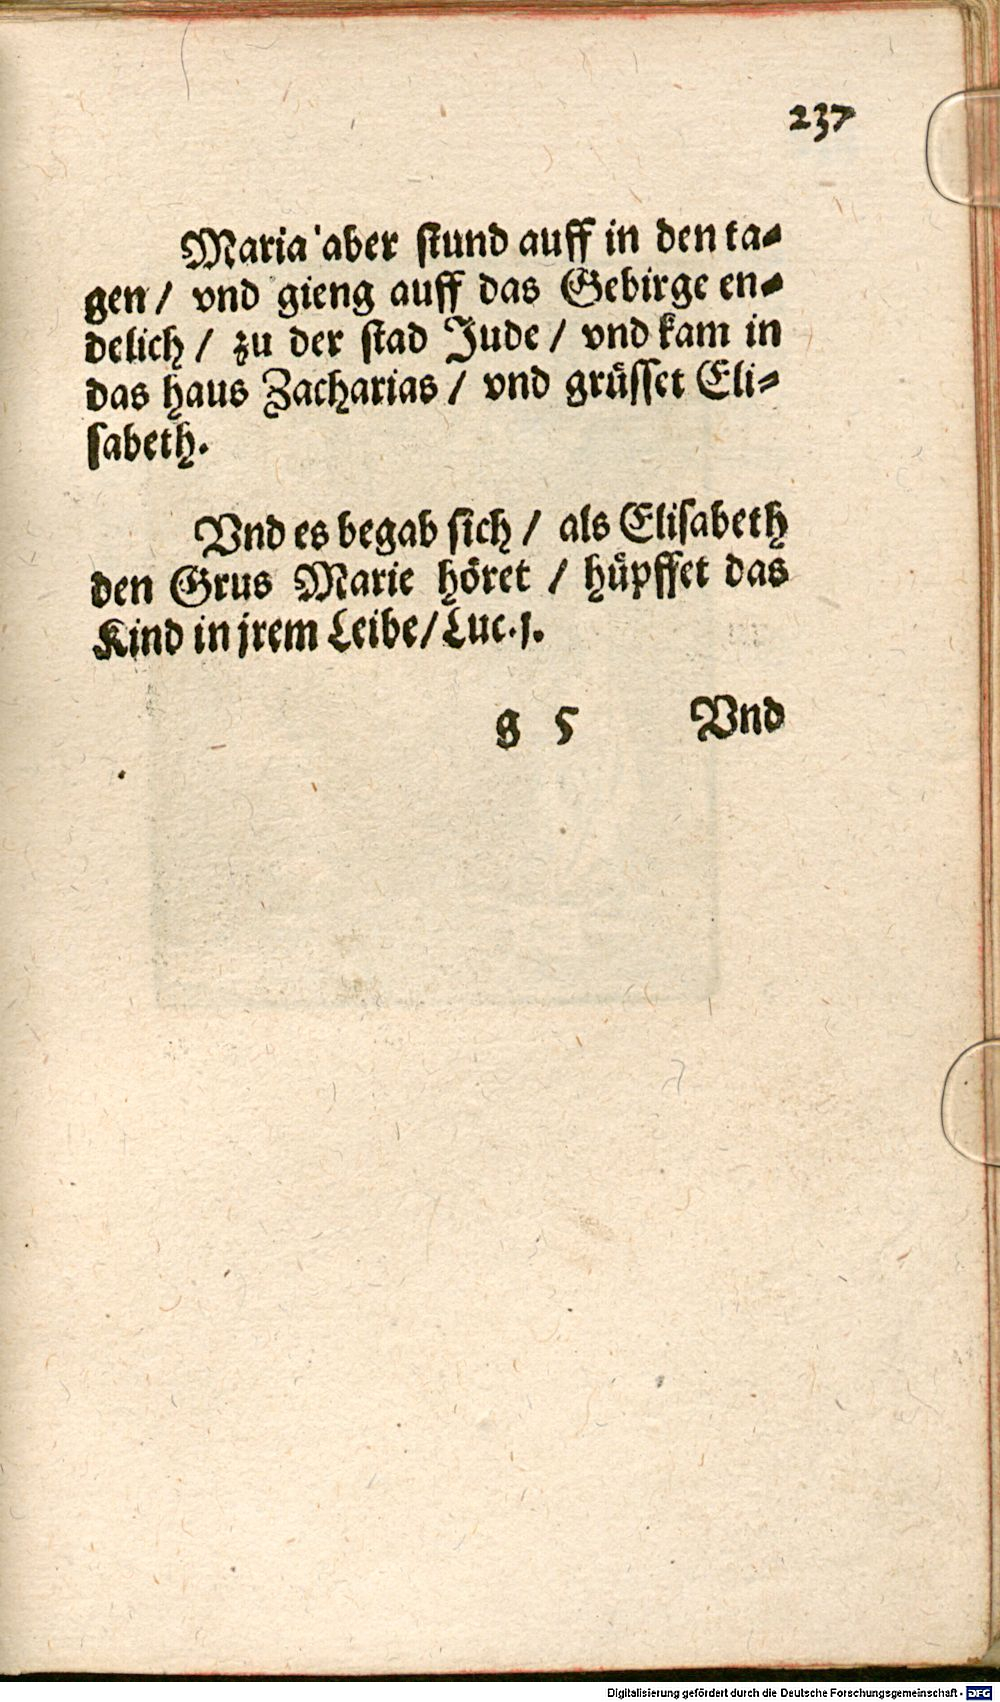 237
Maria aber ſtund auff in den ta⸗
gen / vnd gieng auff das Gebirge en⸗
delich / zu der ſtad Jude / vnd kam in
das haus Zacharias / vnd grüſſet Eli⸗
ſabeth.
Vnd es begab ſich / als Eliſabeth
den Grus Marie höret / hüpffet das
Kind in jrem Leibe / Luc. j.
g 5 Vnd
Digitalisierung gefördert durch die Deutsche Forschungsgemeinschaft - DFG